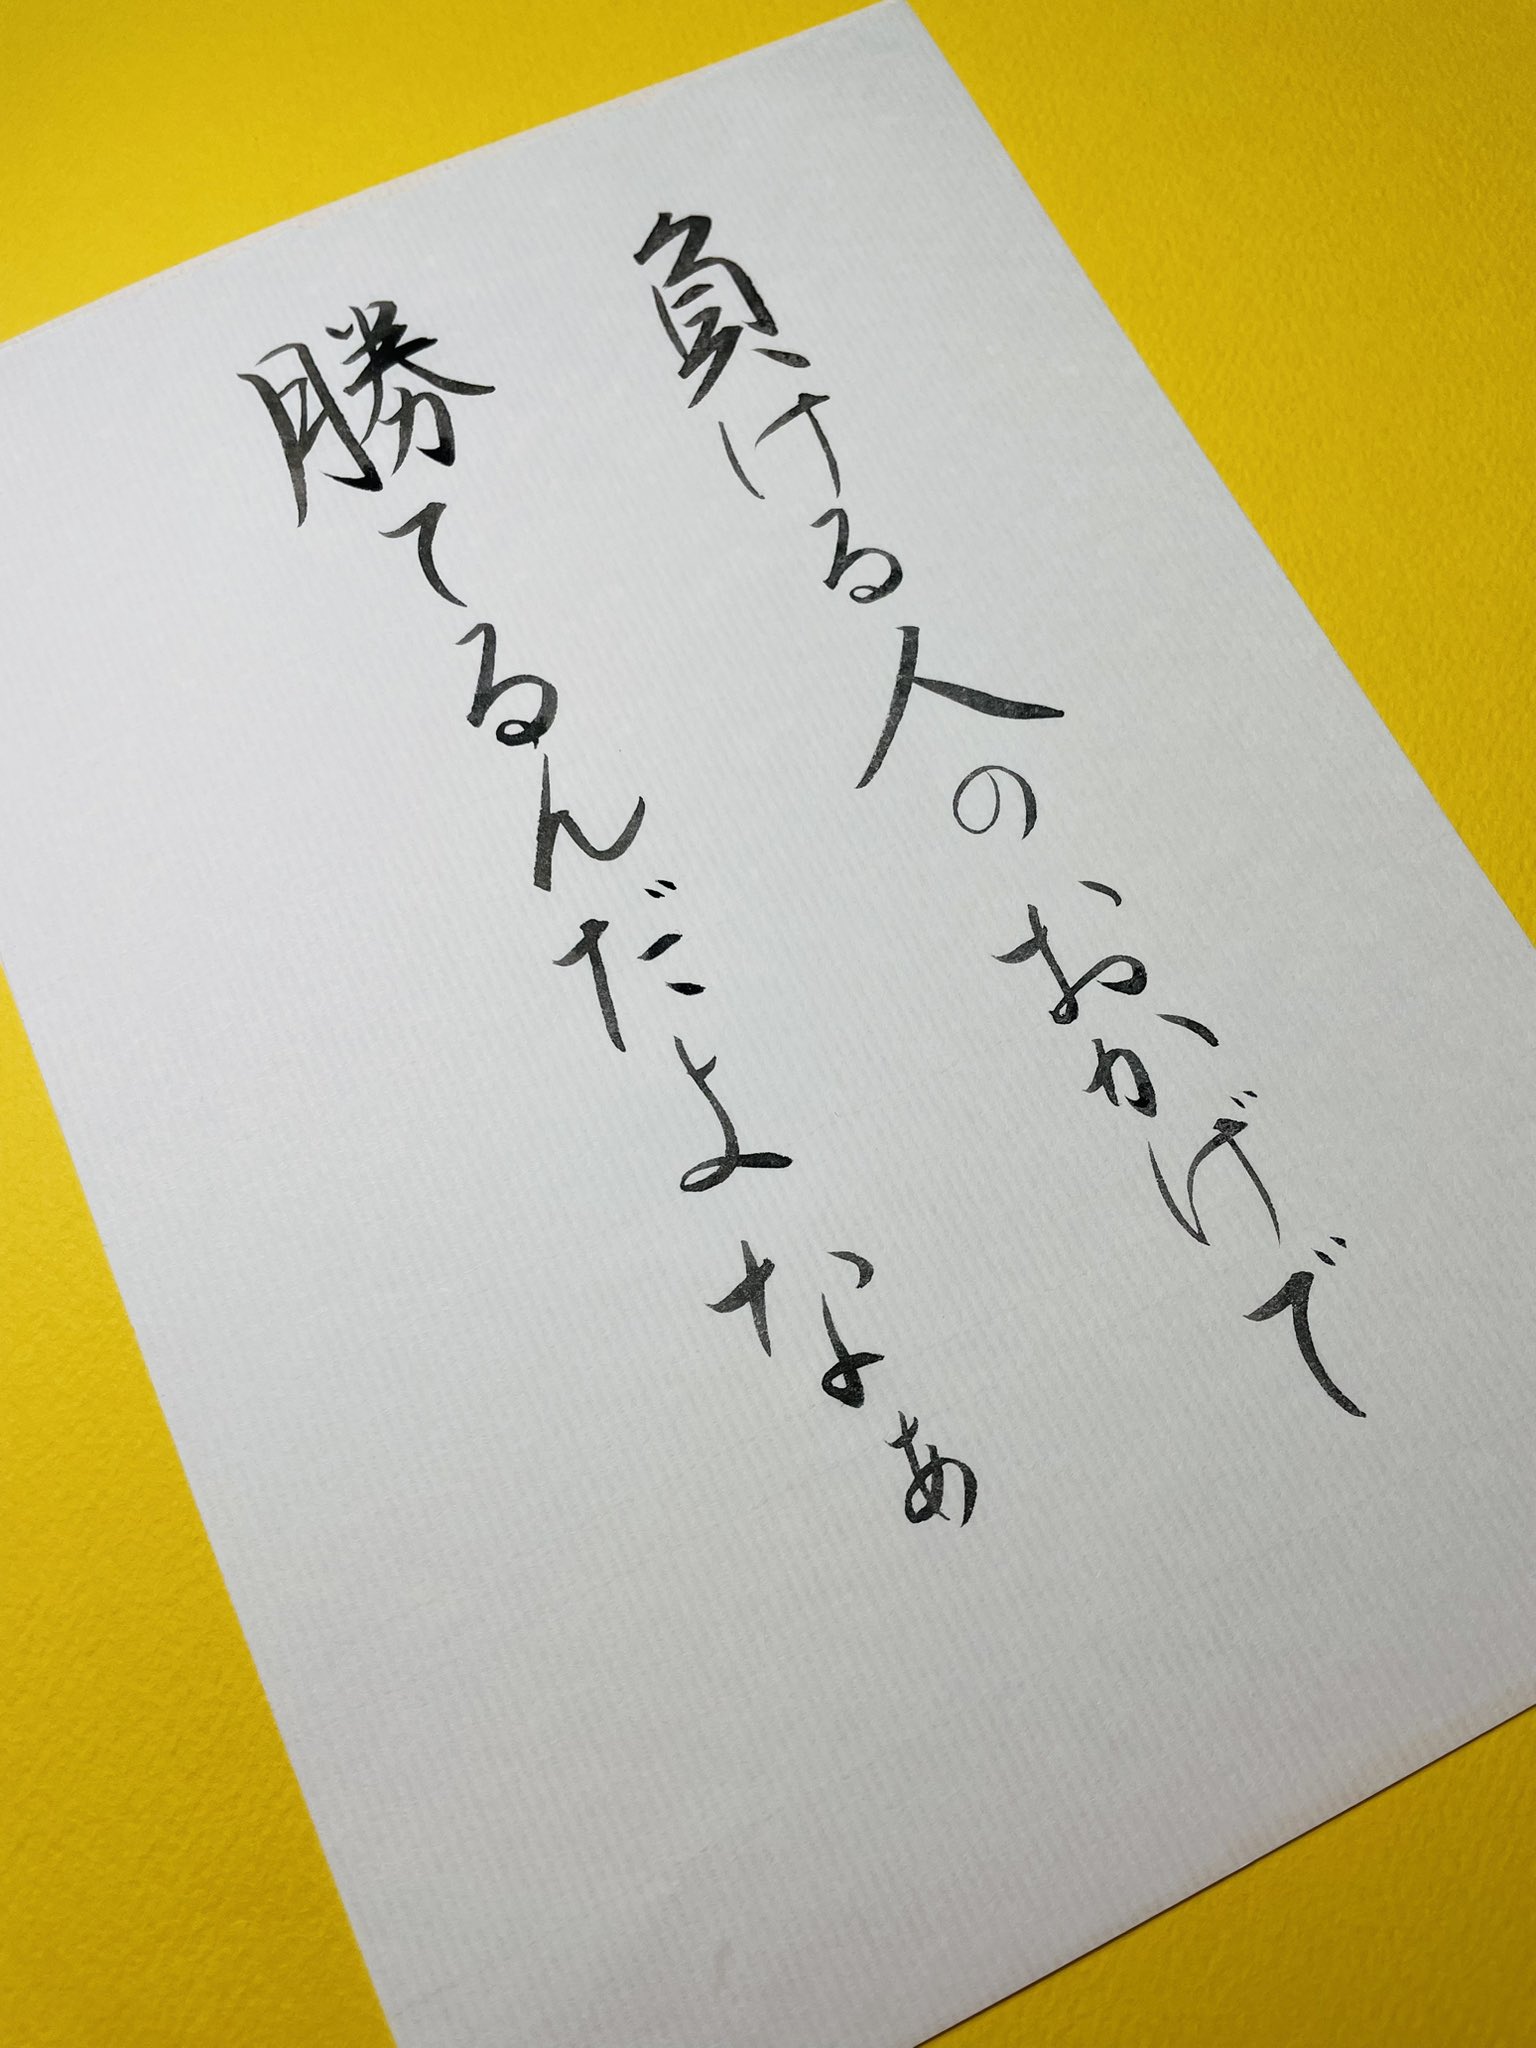 負ける人のおかげで
勝てるんだよなぁ